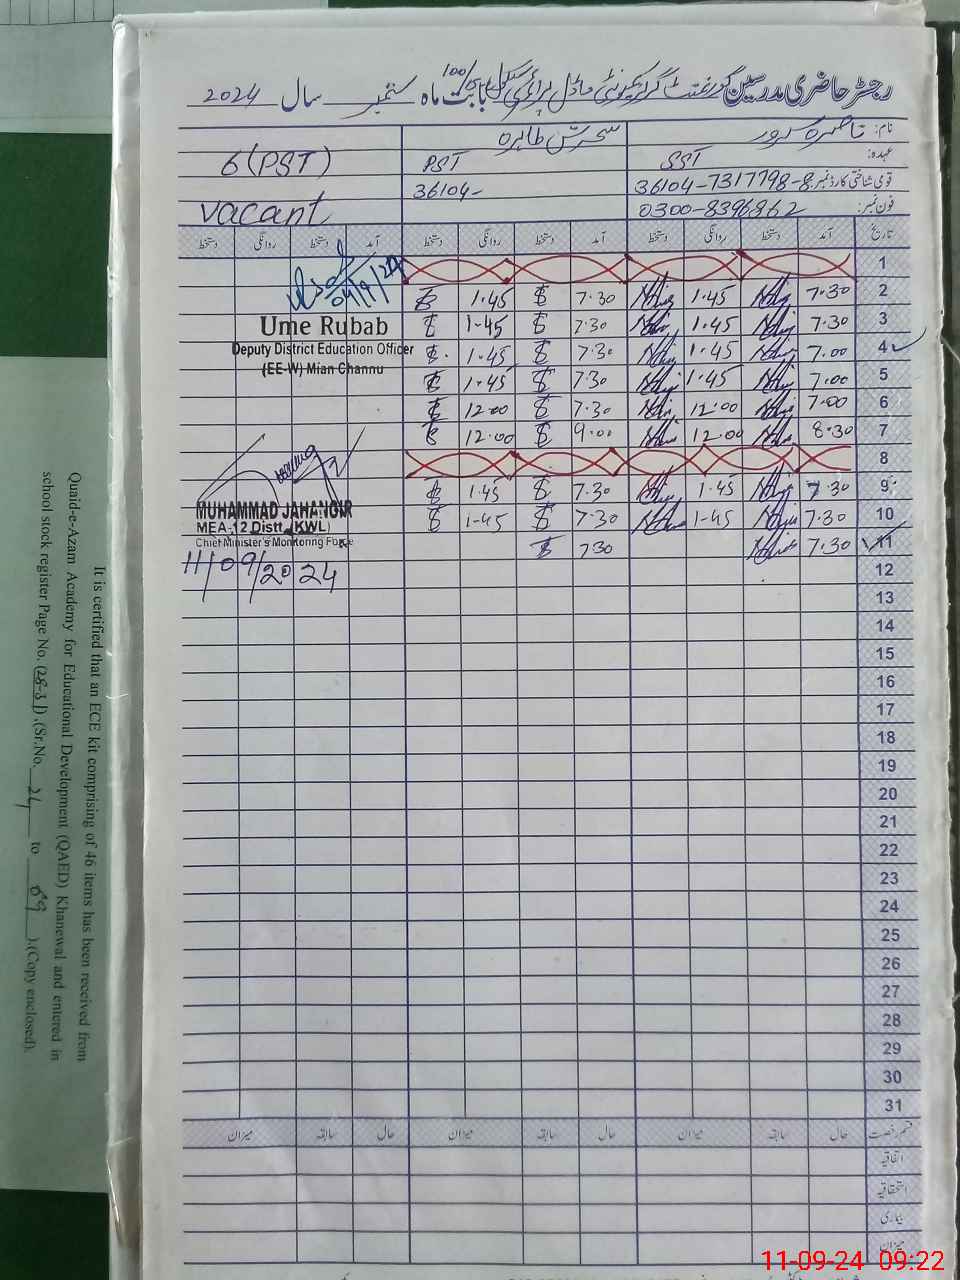 رجسٹر حاضری مدرسین گورنمنٹ گرلز کمیونٹی ماڈل پرائمری سکول 100/ بابت ماہ ستمبر سال 2024
نام: سحرش طاہرہ
عہدہ: SST PST 6(PST)
قومی شناختی کارڈ نمبر: 36104-7317798-8 36104-
فون نمبر: 0300-8396862 Vacant
تاریخ آمد دستخط روانگی دستخط آمد دستخط روانگی دستخط آمد دستخط روانگی دستخط
1
2 7.30 1.45 7.30 1.45
3 7.30 1.45 7.30 1.45
4 7.00 1.45 7.30 1.45
5 7.00 1.45 7.30 1.45
6 7.00 12.00 7.30 12.00
7 8.30 12.00 9.00 12.00
8
9 7.30 1.45 7.30 1.45
10 7.30 1.45 7.30 1.45
11 7.30 7.30
12
13
14
15
16
17
18
19
20
21
22
23
24
25
26
27
28
29
30
31
04/9/24
Ume Rubab
Deputy District Education Officer
(EE-W) Mian Channu
MUHAMMAD JAHANGIR
MEA-12 Distt. (KWL)
Chief Minister's Monitoring Force
11/09/2024
قسم رخصت حال سابقہ میزان حال سابقہ میزان حال سابقہ میزان
اتفاقیہ
استحقاقیہ
بیماری
میزان
It is certified that an ECE kit comprising of 46 items has been received from
Quaid-e-Azam Academy for Educational Development (QAED) Khanewal and entered in
school stock register Page No. (28-31) ,(Sr.No. 24 to 69 ).(Copy enclosed).
11-09-24 09:22